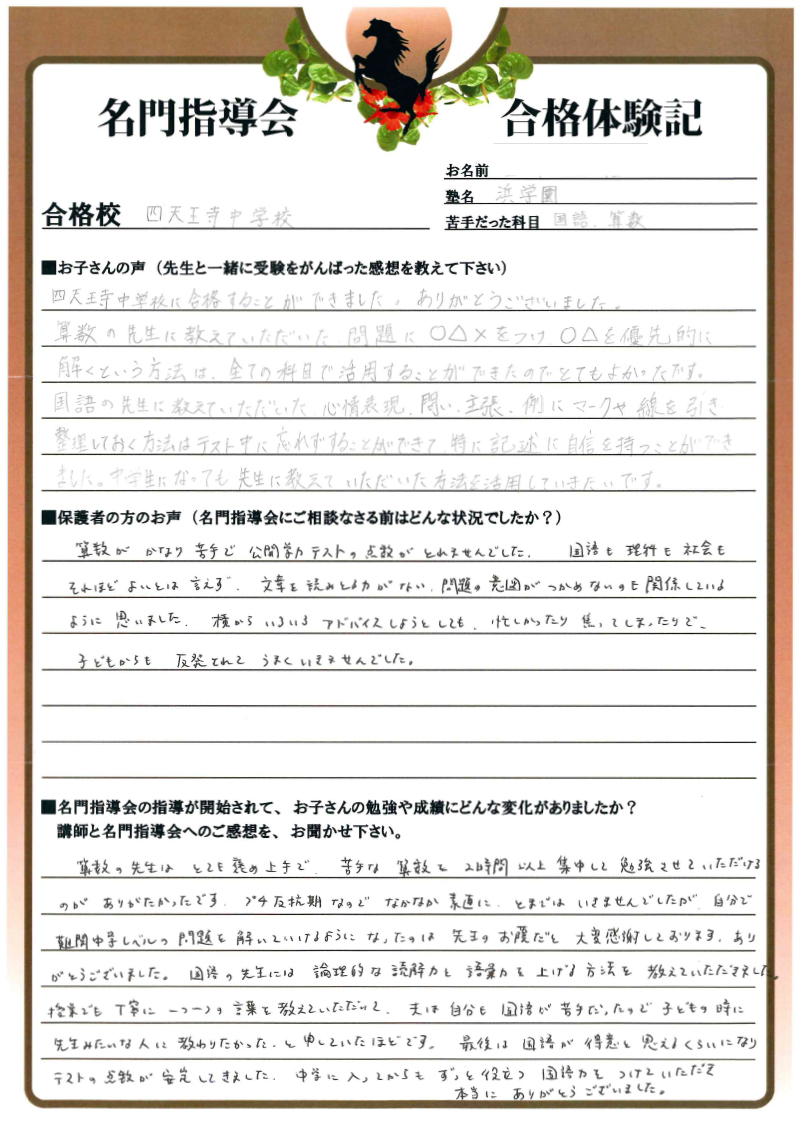 名門指導会 合格体験記
お名前
塾名 浜学園
合格校 四天王寺中学校
苦手だった科目 国語、算数
■お子さんの声（先生と一緒に受験をがんばった感想を教えて下さい）
四天王寺中学校に合格することができました。ありがとうございました。
算数の先生に教えていただいた、問題に○△×をつけ○△を優先的に
解くという方法は、全ての科目で活用することができたのでとてもよかったです。
国語の先生に教えていただいた、心情表現、問い、主張、例にマークや線を引き
整理しておく方法はテスト中に忘れずすることができて、特に記述に自信を持つことができ
ました。中学生になっても先生に教えていただいた方法を活用していきたいです。
■保護者の方のお声（名門指導会にご相談なさる前はどんな状況でしたか？）
算数がかなり苦手で公開学力テストの点数がとれませんでした。 国語も理科も社会も
それほどよいとは言えず、文章を読みとる力がない、問題の意図がつかめないのも関係している
ように思いました。横からいろいろアドバイスしようとしても、忙しかったり焦ってしまったりで、
子どもからも反発されてうまくいきませんでした。
■名門指導会の指導が開始されて、お子さんの勉強や成績にどんな変化がありましたか？
講師と名門指導会へのご感想を、お聞かせ下さい。
算数の先生はとても褒め上手で、苦手な算数を2時間以上集中して勉強させていただける
のがありがたかったです。プチ反抗期なのでなかなか素直に、とまではいきませんでしたが、自分で
難関中学レベルの問題を解いていけるようになったのは先生のお陰だと大変感謝しております。あり
がとうございました。国語の先生には論理的な読解力と語彙力を上げる方法を教えていただきました。
授業でも丁寧に一つ一つの言葉を教えていただいて、夫は自分も国語が苦手だったので子どもの時に
先生みたいな人に教わりたかった、と申していたほどです。最後は国語が得意と思えるくらいになり
テストの点数が安定してきました。中学に入ってからもずっと役立つ国語力をつけていただき
本当にありがとうございました。